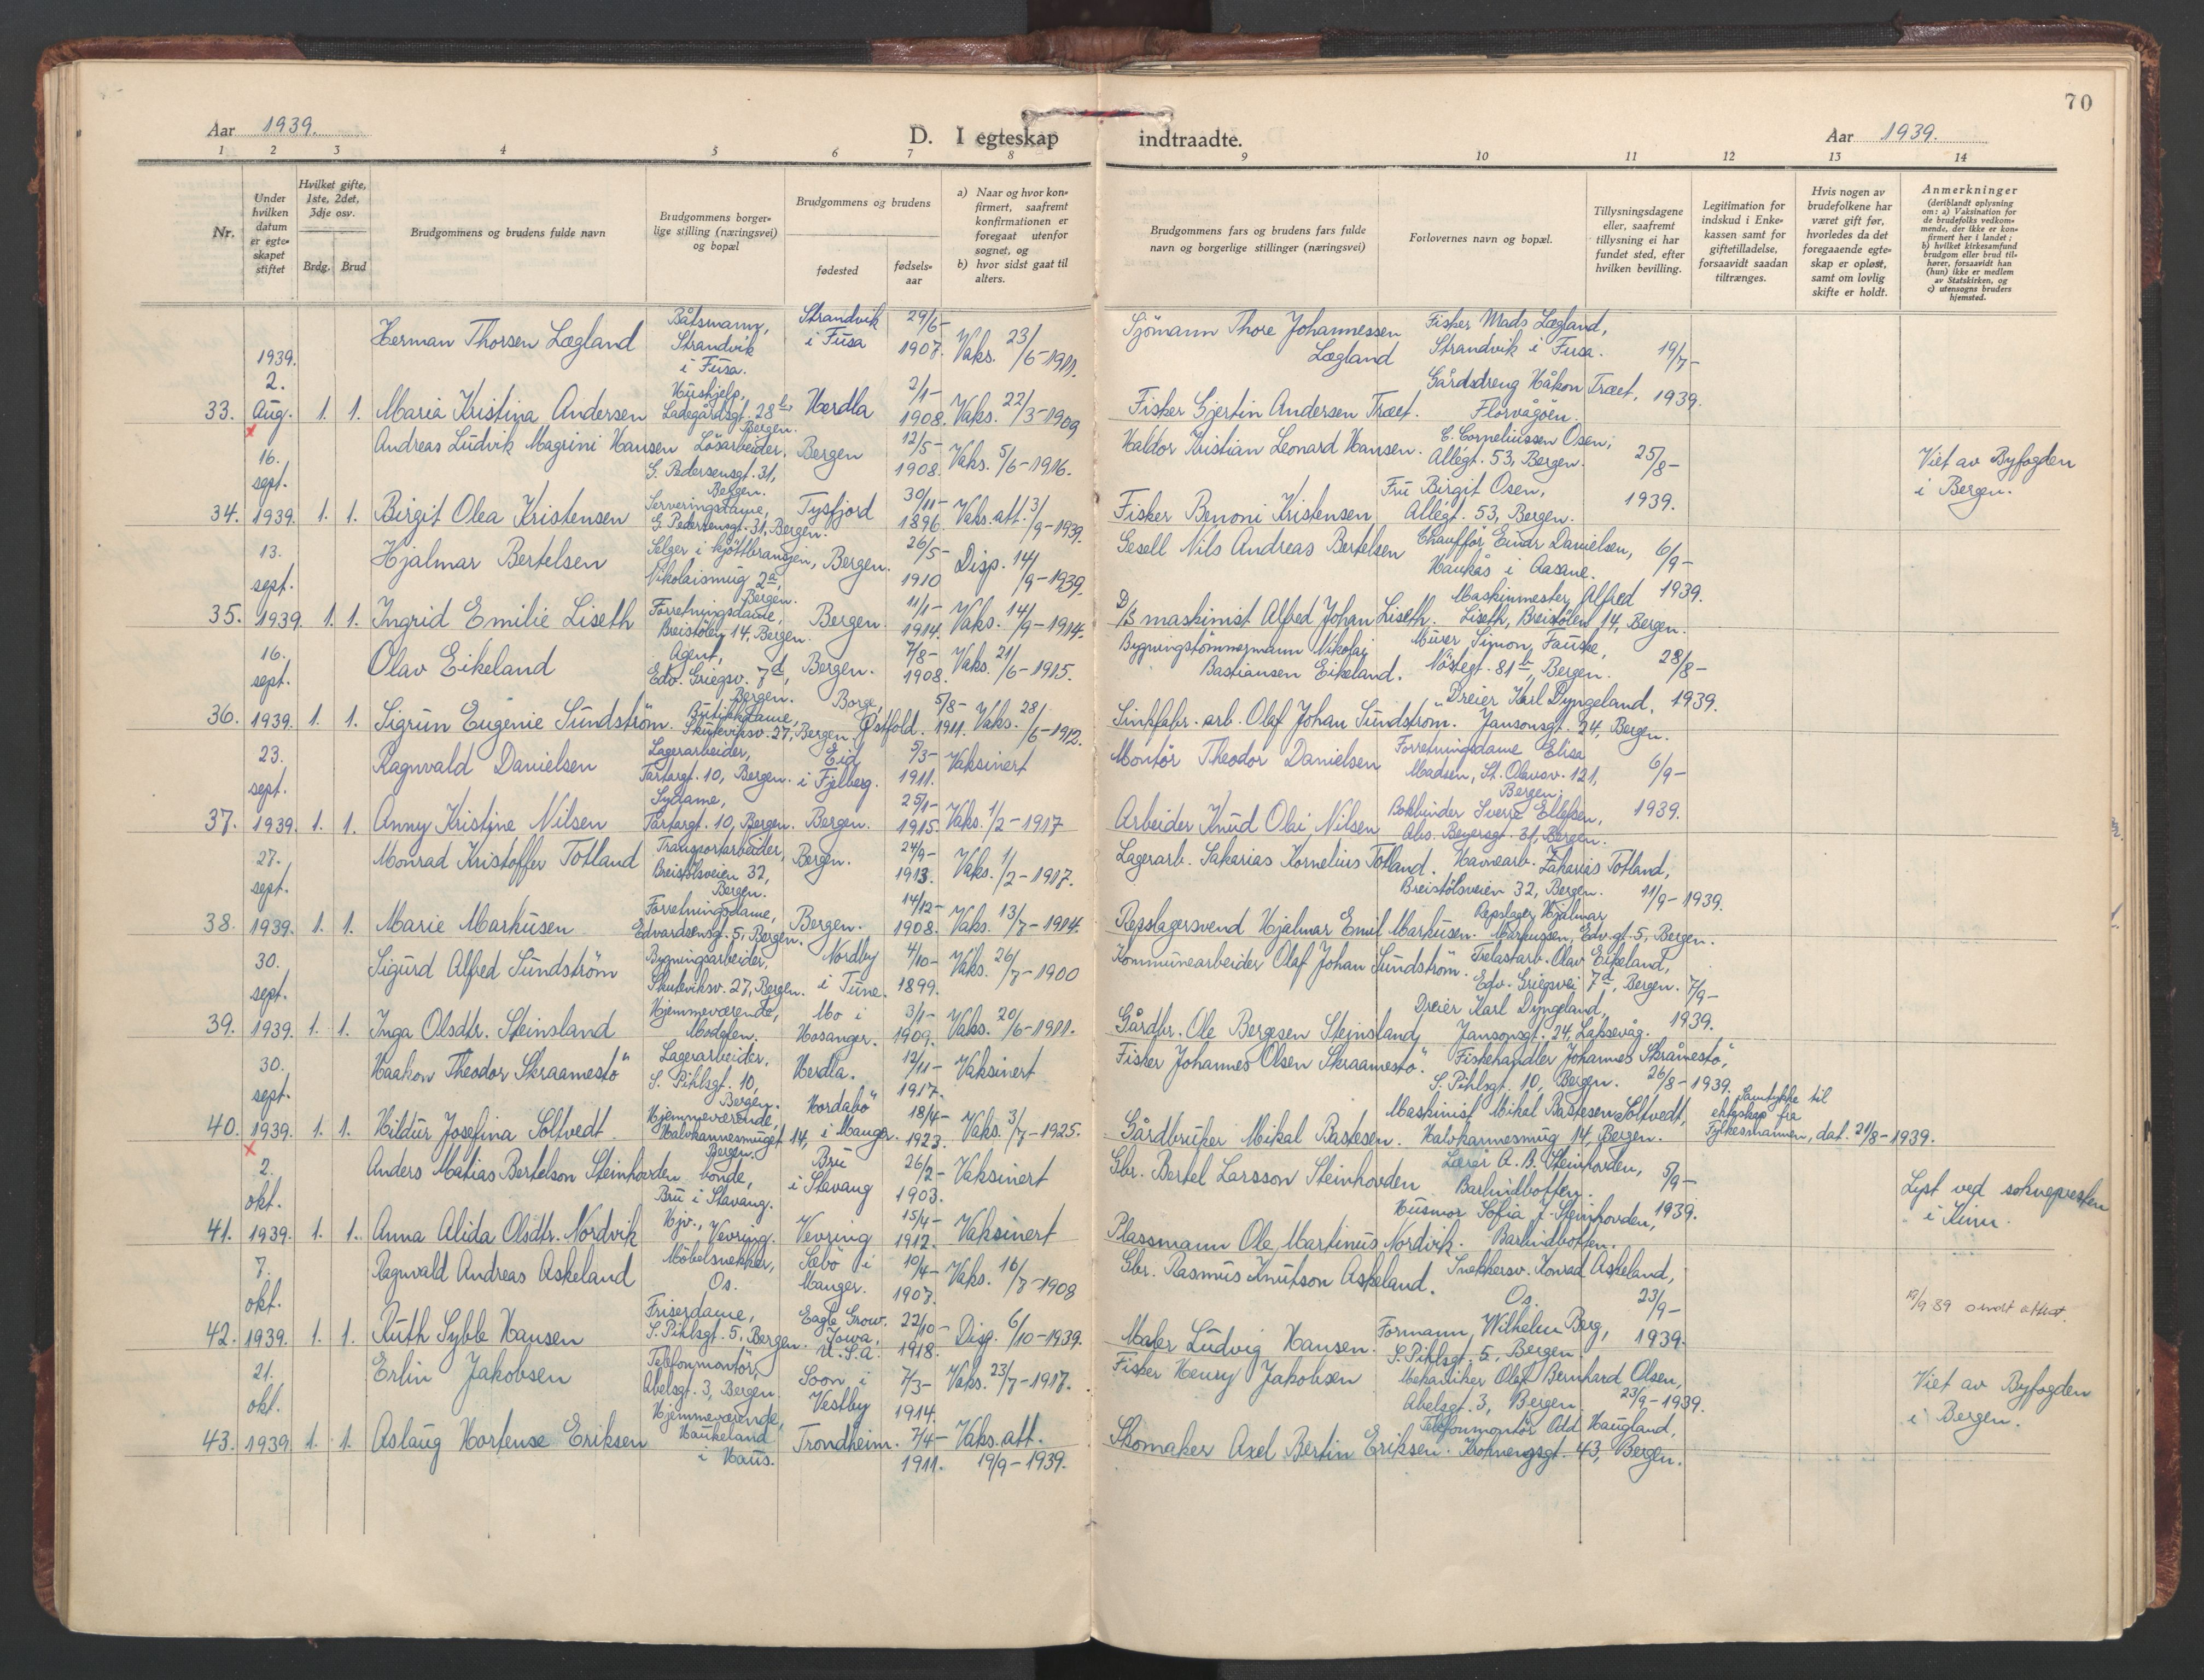 70
Aar 1939.
D. I egteskap indtraadte.
Aar 1939.
1 2 3 4 5 6 7 8 9 10 11 12 13 14
Nr.
Under hvilken datum er egteskapet stiftet
Hvilket gifte, 1ste, 2det, 3dje osv.
Brdg. Brud
Brudgommens og brudens fulde navn
Brudgommens borgerlige stilling (næringsvei) og bopæl
Brudgommens og brudens
fødested
fødselsaar
a) Naar og hvor konfirmert, saafremt konfirmationen er foregaat utenfor sognet, og
b) hvor sidst gaat til alters.
Brudgommens fars og brudens fars fulde navn og borgerlige stillinger (næringsvei)
Forlovernes navn og bopæl.
Tillysningsdagene eller, saafremt tillysning ei har fundet sted, efter hvilken bevilling.
Legitimation for indskud i Enkekassen samt for giftetilladelse, forsaavidt saadan tiltrænges.
Hvis nogen av brudefolkene har været gift før, hvorledes da det foregaaende egteskap er opløst, samt om lovlig skifte er holdt.
Anmerkninger
(deriblandt oplysning om: a) Vaksination for de brudefolks vedkommende, der ikke er konfirmert her i landet; b) hvilket kirkesamfund brudgom eller brud tilhører, forsaavidt han (hun) ikke er medlem av Statskirken, og c) utensogns bruders hjemsted.
33. 1939. 2. Aug. 1. 1.
Herman Thorsen Lægland Båtsmann, Strandvik i Fusa. Strandvik i Fusa 29/6-1907. Vaks. 23/6-1911. Sjömann Thore Johannessen Lægland Fisker Mads Lægland, Strandvik i Fusa. 19/7-1939.
Maria Kristina Andersen Hushjelp, Ladegårdsgt. 28 Bergen. Herdla 2/1-1908. Vaks. 22/3-1909 Fisker Gjertin Andersen Træet. Gårdsdreng Håkon Træet, Florvågöen.
34. 16. sept. 1939. 1. 1.
Andreas Ludvik Magrini Hansen Lösarbeider, G. Pedersensgt. 31, Bergen. Bergen 12/5-1908. Vaks. 5/6-1916. Haldor Kristian Leonard Hansen. C. Corneliussen Osen, Allégt. 53, Bergen. 25/8-1939. Viet av Byfogden i Bergen.
Birgit Olea Kristensen Serveringsdame, G. Pedersensgt. 31, Bergen. Tysfjord 30/11-1896. Vaks. att. 3/9-1939. Fisker Benoni Kristensen Fru Birgit Osen, Allégt. 53, Bergen.
35. 13. sept. 1939. 1. 1.
Hjalmar Bertelsen Selger i kjöttbransjen, Nikolaismug 2a, Bergen. Bergen. 26/5-1910 Disp. 14/9-1939. Gesell Nils Andreas Bertelsen Chaufför Einar Danielsen, Haukås i Aasane. 6/9-1939.
Ingrid Emilie Liseth Forretningsdame, Breistölen 14, Bergen. Bergen. 11/1-1914. Vaks. 14/9-1914. D/S maskinist Alfred Johan Liseth. Maskinmester Alfred Liseth, Breistölen 14, Bergen.
36. 16. sept. 1939. 1. 1.
Olav Eikeland Agent, Edv. Griegsv. 7d, Bergen. Bergen. 7/8-1908. Vaks. 21/6-1915. Bygningstömmermann Nikolai Bastiansen Eikeland. Murer Simon Fauske, Nöstegt. 81 b, Bergen. 28/8-1939.
Sigrun Eugenie Sundström. Butikkdame, Skuteviksv. 27, Bergen. Borge, Østfold. 5/8-1911. Vaks. 28/6-1912. Sinkfabr. arb. Olaf Johan Sundström. Dreier Karl Dyngeland, Jansonsgt. 24, Bergen.
37. 23. sept. 1939. 1. 1.
Ragnvald Danielsen Lagerarbeider, Tartargt. 10, Bergen. Eid i Fjelberg. 5/3-1911. Vaksinert Montör Theodor Danielsen Forretningsdame Elisa Madsen, St. Olavsv. 121, Bergen. 6/9-1939.
Anny Kristine Nilsen Sydame, Tartargt. 10, Bergen. Bergen. 25/1-1915. Vaks. 1/2-1917 Arbeider Knud Olai Nilsen Bokbinder Sverre Ellefsen, Abs. Beyersgt. 31, Bergen.
38. 27. sept. 1939. 1. 1.
Monrad Kristoffer Totland Transportarbeider, Breistölsveien 32, Bergen. Bergen. 24/9-1913. Vaks. 1/2-1917. Lagerarb. Sakarias Kornelius Totland. Havnearb. Zakarias Totland, Breistölsveien 32, Bergen. 11/9-1939.
Marie Markusen Forretningsdame, Edvardsensgt. 5, Bergen. Bergen. 14/12-1908. Vaks. 13/7-1914. Repslagersvend Hjalmar Emil Markusen. Repslager Hjalmar Markussen, Edv. gt. 5, Bergen.
39. 30. sept. 1939. 1. 1.
Sigurd Alfred Sundström Bygningsarbeider, Skuteviksv. 27, Bergen. Nordby i Tune. 4/10-1899. Vaks. 26/7-1900 Kommunearbeider Olaf Johan Sundström. Trelastarb. Olav Eikeland, Edv. Griegsvei 7d, Bergen. 7/9-1939.
Inga Olsdtr. Steinsland Hjemmeværende, Modalen. Mo i Hosanger. 3/1-1909. Vaks. 20/6-1911. Gårdbr. Ole Bergesen Steinsland Dreier Karl Dyngeland, Jansonsgt. 24, Laksevåg.
40. 30. sept. 1939. 1. 1.
Haakon Theodor Skraamestö Lagerarbeider, S. Pihlsgt. 10, Bergen. Herdla. 12/11-1917. Vaksinert Fisker Johannes Olsen Skraamestö. Fiskehandler Johannes Skråmestö, S. Pihlsgt. 10, Bergen. 26/8-1939.
Hildur Josefina Soltvedt Hjemmeværende, Halvkannesmuget 14, Bergen. Hordabö i Manger. 18/4-1923. Vaks. 3/7-1925. Gårdbruker Mikal Bastesen. Maskinist Mikal Bastesen Soltvedt, Halvkannesmug 14, Bergen. Samtykke til ekteskap fra Fylkesmannen, dat. 21/8-1939.
41. 2. okt. 1939. 1. 1.
Anders Matias Bertelson Steinhovden bonde, Bru i Stavang. Bru i Stavang 26/2-1903. Vaksinert Gbr. Bertel Larsson Steinhovden Lærer A. B. Steinhovden, Barlindbotten. 5/9-1939. Lyst ved soknepresten i Kinn.
Anna Alida Olsdtr. Nordvik Hjv., Vevring. Vevring 15/4-1912. Vaksinert Plassmann Ole Martinus Nordvik. Husmor Sofia J. Steinhovden, Barlindbotten.
42. 7. okt. 1939. 1. 1.
Ragnvald Andreas Askeland Möbelsnekker, Os. Sæbö i Manger. 10/4-1907. Vaks. 16/7-1908 Gbr. Rasmus Knutson Askeland. Snekkersv. Konrad Askeland, Os. 23/9-1939. 19/9 39 attest.
Ruth Syble Hansen Friserdame, S. Pihlsgt. 5, Bergen. Eagle Grow. Jowa, U.S.A. 22/10-1918. Disp. 6/10-1939. Maler Ludvig Hansen. Formann Wilhelm Berg, S. Pihlsgt. 5, Bergen.
43. 21. okt. 1939. 1. 1.
Erlin Jakobsen Telefonmontör, Abelsgt. 3, Bergen. Soon i Vestby 7/3-1914. Vaks. 23/7-1917. Fisker Henry Jakobsen Mekaniker Olaf Bernhard Olsen, Abelsgt. 3, Bergen. 23/9-1939. Viet av Byfogden i Bergen.
Aslaug Hortense Eriksen Hjemmeværende, Haukeland i Haus. Trondheim. 7/4-1911. Vaks. att. 19/9-1939. Skomaker Axel Bertin Eriksen. Telefonmontör Odd Haugland, Krohnengsgt. 43, Bergen.